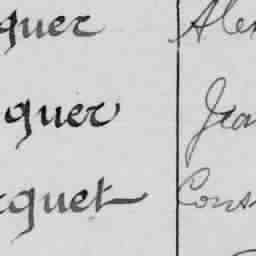 quer Alex
quer Jean
cquet Cons